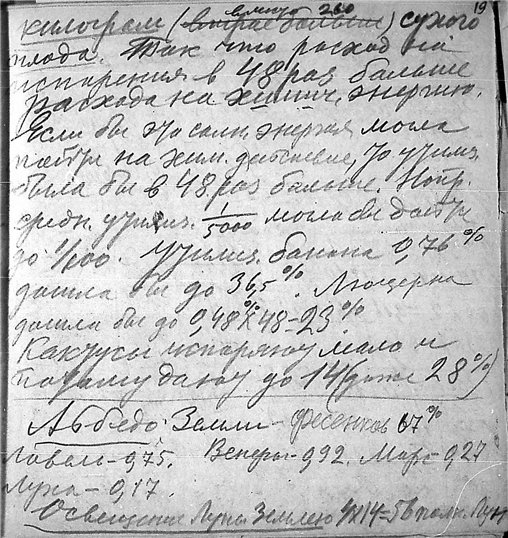 19
в минус 200
килограм (втрое больше) сухого
плода. Так что расход на
испарения в 48 раз больше
расхода на химич. энергию.
Если бы эта солн. энергия могла
пойти на хим. действие, то утилиз.
была бы в 48 раз больше. Напр.
средн. утилиз. 1/5000 могла бы дойти
до 1/100. Утилиз. банана 0,76%
дошла бы до 36,5%. Люцерна
дошла бы до 0,48%×48=23%.
Кактусы испаряют мало и
потому дают до 14 (даже 28%)
Альбедо Земли - Фесенков 67%
Ловелл-0,75. Венеры-0,92. Марс-0,27
Луна-0,17.
Освещение Луны Землею 4×14=56 полн. Лун